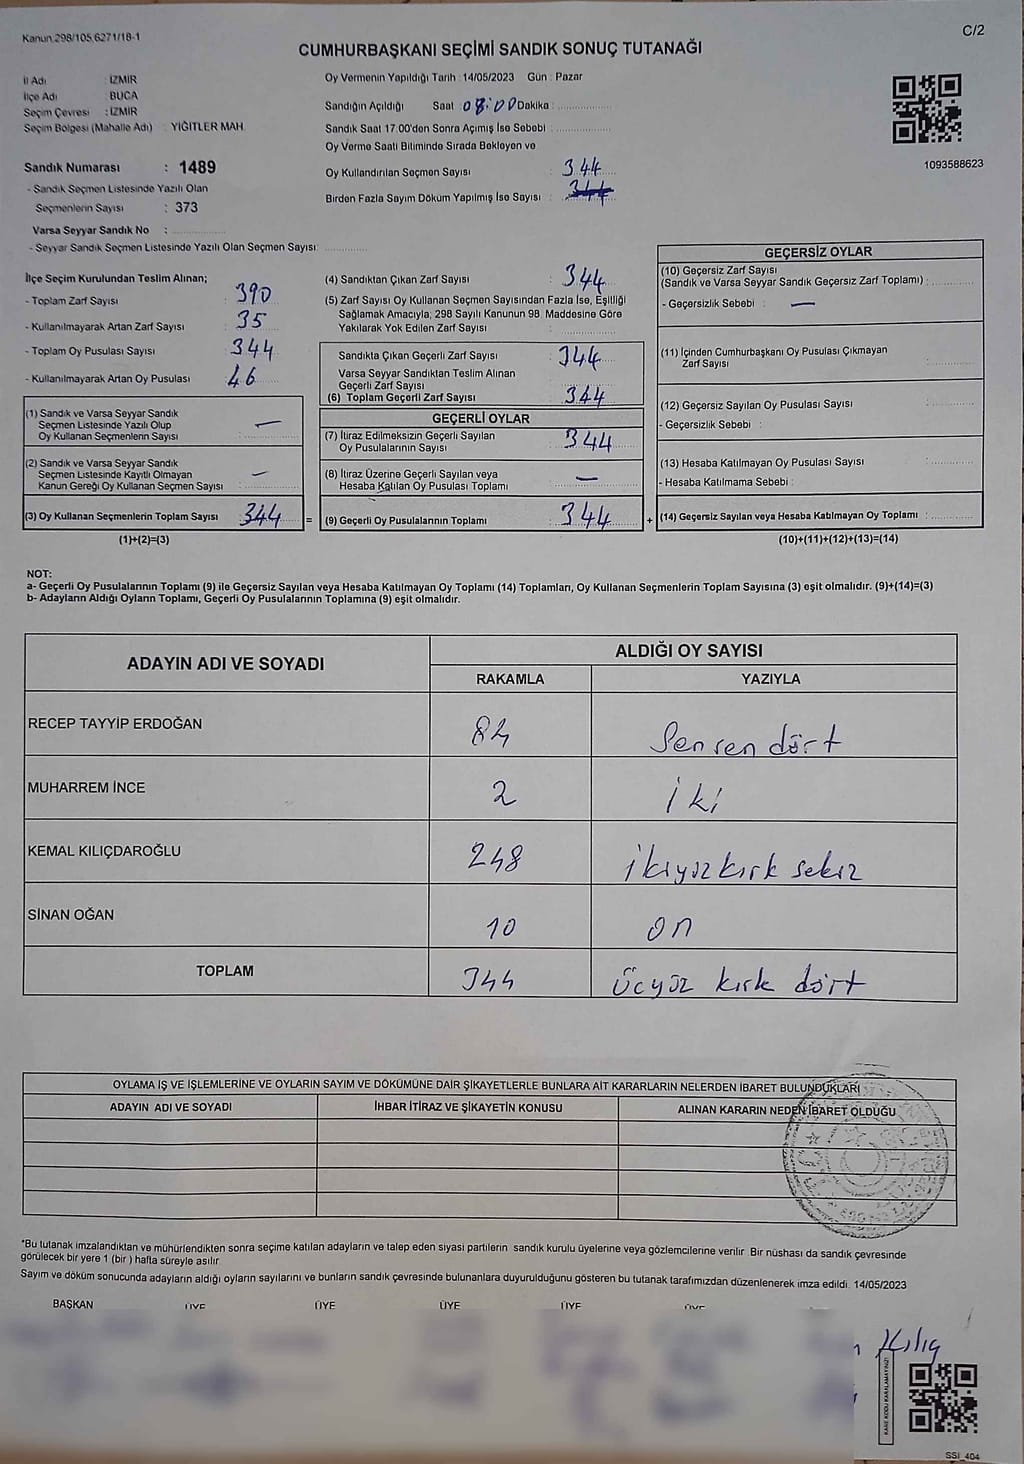 Kanun 298/105,6271/18-1
C/2
CUMHURBAŞKANI SEÇİMİ SANDIK SONUÇ TUTANAĞI
İl Adı : İZMİR
İlçe Adı : BUCA
Seçim Çevresi : İZMİR
Seçim Bölgesi (Mahalle Adı) : YİĞİTLER MAH.
Sandık Numarası : 1489
- Sandık Seçmen Listesinde Yazılı Olan
Seçmenlerin Sayısı : 373
Varsa Seyyar Sandık No :
- Seyyar Sandık Seçmen Listesinde Yazılı Olan Seçmen Sayısı:
Oy Vermenin Yapıldığı Tarih : 14/05/2023 Gün : Pazar
Sandığın Açıldığı Saat : 08:00 Dakika :
Sandık Saat 17.00'den Sonra Açımış İse Sebebi :
Oy Verme Saati Bitiminde Sırada Bekleyen ve
Oy Kullandırılan Seçmen Sayısı : 344
Birden Fazla Sayım Döküm Yapılmış İse Sayısı : 344
1093588623
İlçe Seçim Kurulundan Teslim Alınan;
- Toplam Zarf Sayısı : 390
- Kullanılmayarak Artan Zarf Sayısı : 35
- Toplam Oy Pusulası Sayısı : 344
- Kullanılmayarak Artan Oy Pusulası : 46
(1) Sandık ve Varsa Seyyar Sandık
Seçmen Listesinde Yazılı Olup
Oy Kullanan Seçmenlerin Sayısı : —
(2) Sandık ve Varsa Seyyar Sandık
Seçmen Listesinde Kayıtlı Olmayan
Kanun Gereği Oy Kullanan Seçmen Sayısı : —
(3) Oy Kullanan Seçmenlerin Toplam Sayısı 344
(1)+(2)=(3)
(4) Sandıktan Çıkan Zarf Sayısı : 344
(5) Zarf Sayısı Oy Kullanan Seçmen Sayısından Fazla İse, Eşitliği
Sağlamak Amacıyla; 298 Sayılı Kanunun 98. Maddesine Göre
Yakılarak Yok Edilen Zarf Sayısı :
Sandıkta Çıkan Geçerli Zarf Sayısı : 344
Varsa Seyyar Sandıktan Teslim Alınan
Geçerli Zarf Sayısı :
(6) Toplam Geçerli Zarf Sayısı : 344
GEÇERLİ OYLAR
(7) İtiraz Edilmeksizin Geçerli Sayılan
Oy Pusulalarının Sayısı : 344
(8) İtiraz Üzerine Geçerli Sayılan veya
Hesaba Katılan Oy Pusulası Toplamı : —
= (9) Geçerli Oy Pusulalarının Toplamı : 344 +
GEÇERSİZ OYLAR
(10) Geçersiz Zarf Sayısı
(Sandık ve Varsa Seyyar Sandık Geçersiz Zarf Toplamı) :
- Geçersizlik Sebebi : —
(11) İçinden Cumhurbaşkanı Oy Pusulası Çıkmayan
Zarf Sayısı :
(12) Geçersiz Sayılan Oy Pusulası Sayısı :
- Geçersizlik Sebebi :
(13) Hesaba Katılmayan Oy Pusulası Sayısı :
- Hesaba Katılmama Sebebi :
(14) Geçersiz Sayılan veya Hesaba Katılmayan Oy Toplamı :
(10)+(11)+(12)+(13)=(14)
NOT:
a- Geçerli Oy Pusulalarının Toplamı (9) ile Geçersiz Sayılan veya Hesaba Katılmayan Oy Toplamı (14) Toplamları, Oy Kullanan Seçmenlerin Toplam Sayısına (3) eşit olmalıdır. (9)+(14)=(3)
b- Adayların Aldığı Oyların Toplamı, Geçerli Oy Pusulalarının Toplamına (9) eşit olmalıdır.
ADAYIN ADI VE SOYADI ALDIĞI OY SAYISI
RAKAMLA YAZIYLA
RECEP TAYYİP ERDOĞAN 84 Sensen dört
MUHARREM İNCE 2 iki
KEMAL KILIÇDAROĞLU 248 ikiyüz kırk sekiz
SİNAN OĞAN 10 on
TOPLAM 344 Üçyüz kırk dört
OYLAMA İŞ VE İŞLEMLERİNE VE OYLARIN SAYIM VE DÖKÜMÜNE DAİR ŞİKAYETLERLE BUNLARA AİT KARARLARIN NELERDEN İBARET BULUNDUKLARI
ADAYIN ADI VE SOYADI İHBAR İTİRAZ VE ŞİKAYETİN KONUSU ALINAN KARARIN NEDEN İBARET OLDUĞU
*Bu tutanak imzalandıktan ve mühürlendikten sonra seçime katılan adayların ve talep eden siyasi partilerin sandık kurulu üyelerine veya gözlemcilerine verilir. Bir nüshası da sandık çevresinde
görülecek bir yere 1 (bir) hafta süreyle asılır.
Sayım ve döküm sonucunda adayların aldığı oyların sayılarını ve bunların sandık çevresinde bulunanlara duyurulduğunu gösteren bu tutanak tarafımızdan düzenlenerek imza edildi. 14/05/2023
BAŞKAN ÜYE ÜYE ÜYE ÜYE ÜYE
Kılıç
KARE KODU KARALAMAYINIZ!
SSI_404